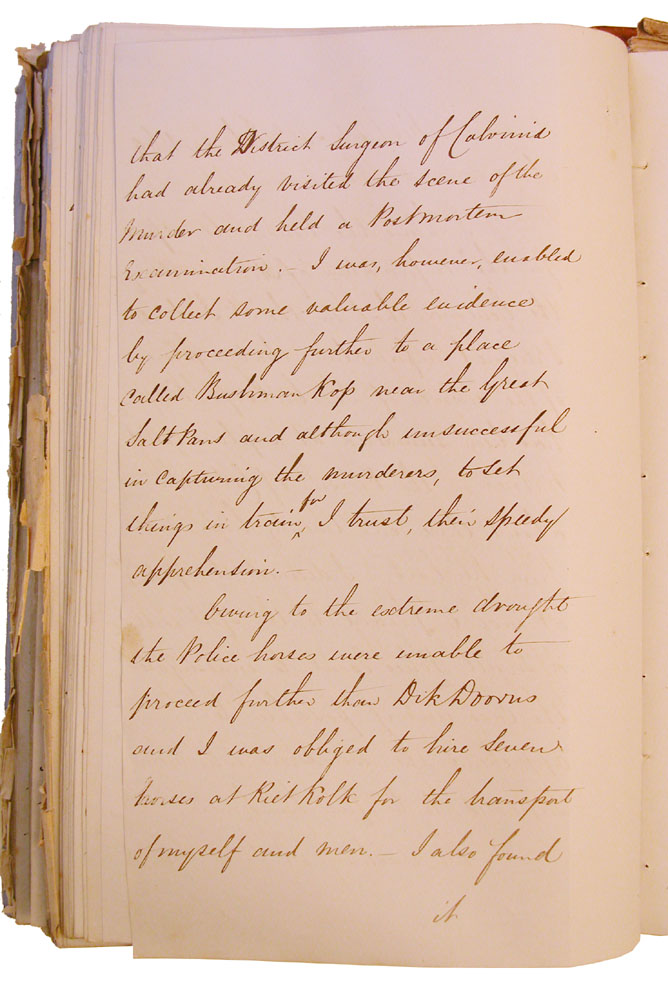 that the District Surgeon of Calvinia
had already visited the scene of the
Murder and held a Postmortem
Examination. – I was, however, enabled
to collect some valuable evidence
by proceeding further to a place
called Bushman Kop near the Great
Salt Pans and although unsuccessful
in capturing the murderers, to set
things in train, for I trust, their speedy
apprehension. –
Owing to the extreme drought
the Police horses were unable to
proceed further than Dik Doorns
and I was obliged to hire seven
horses at Riet Kolk for the transport
of myself and men. – I also found
it